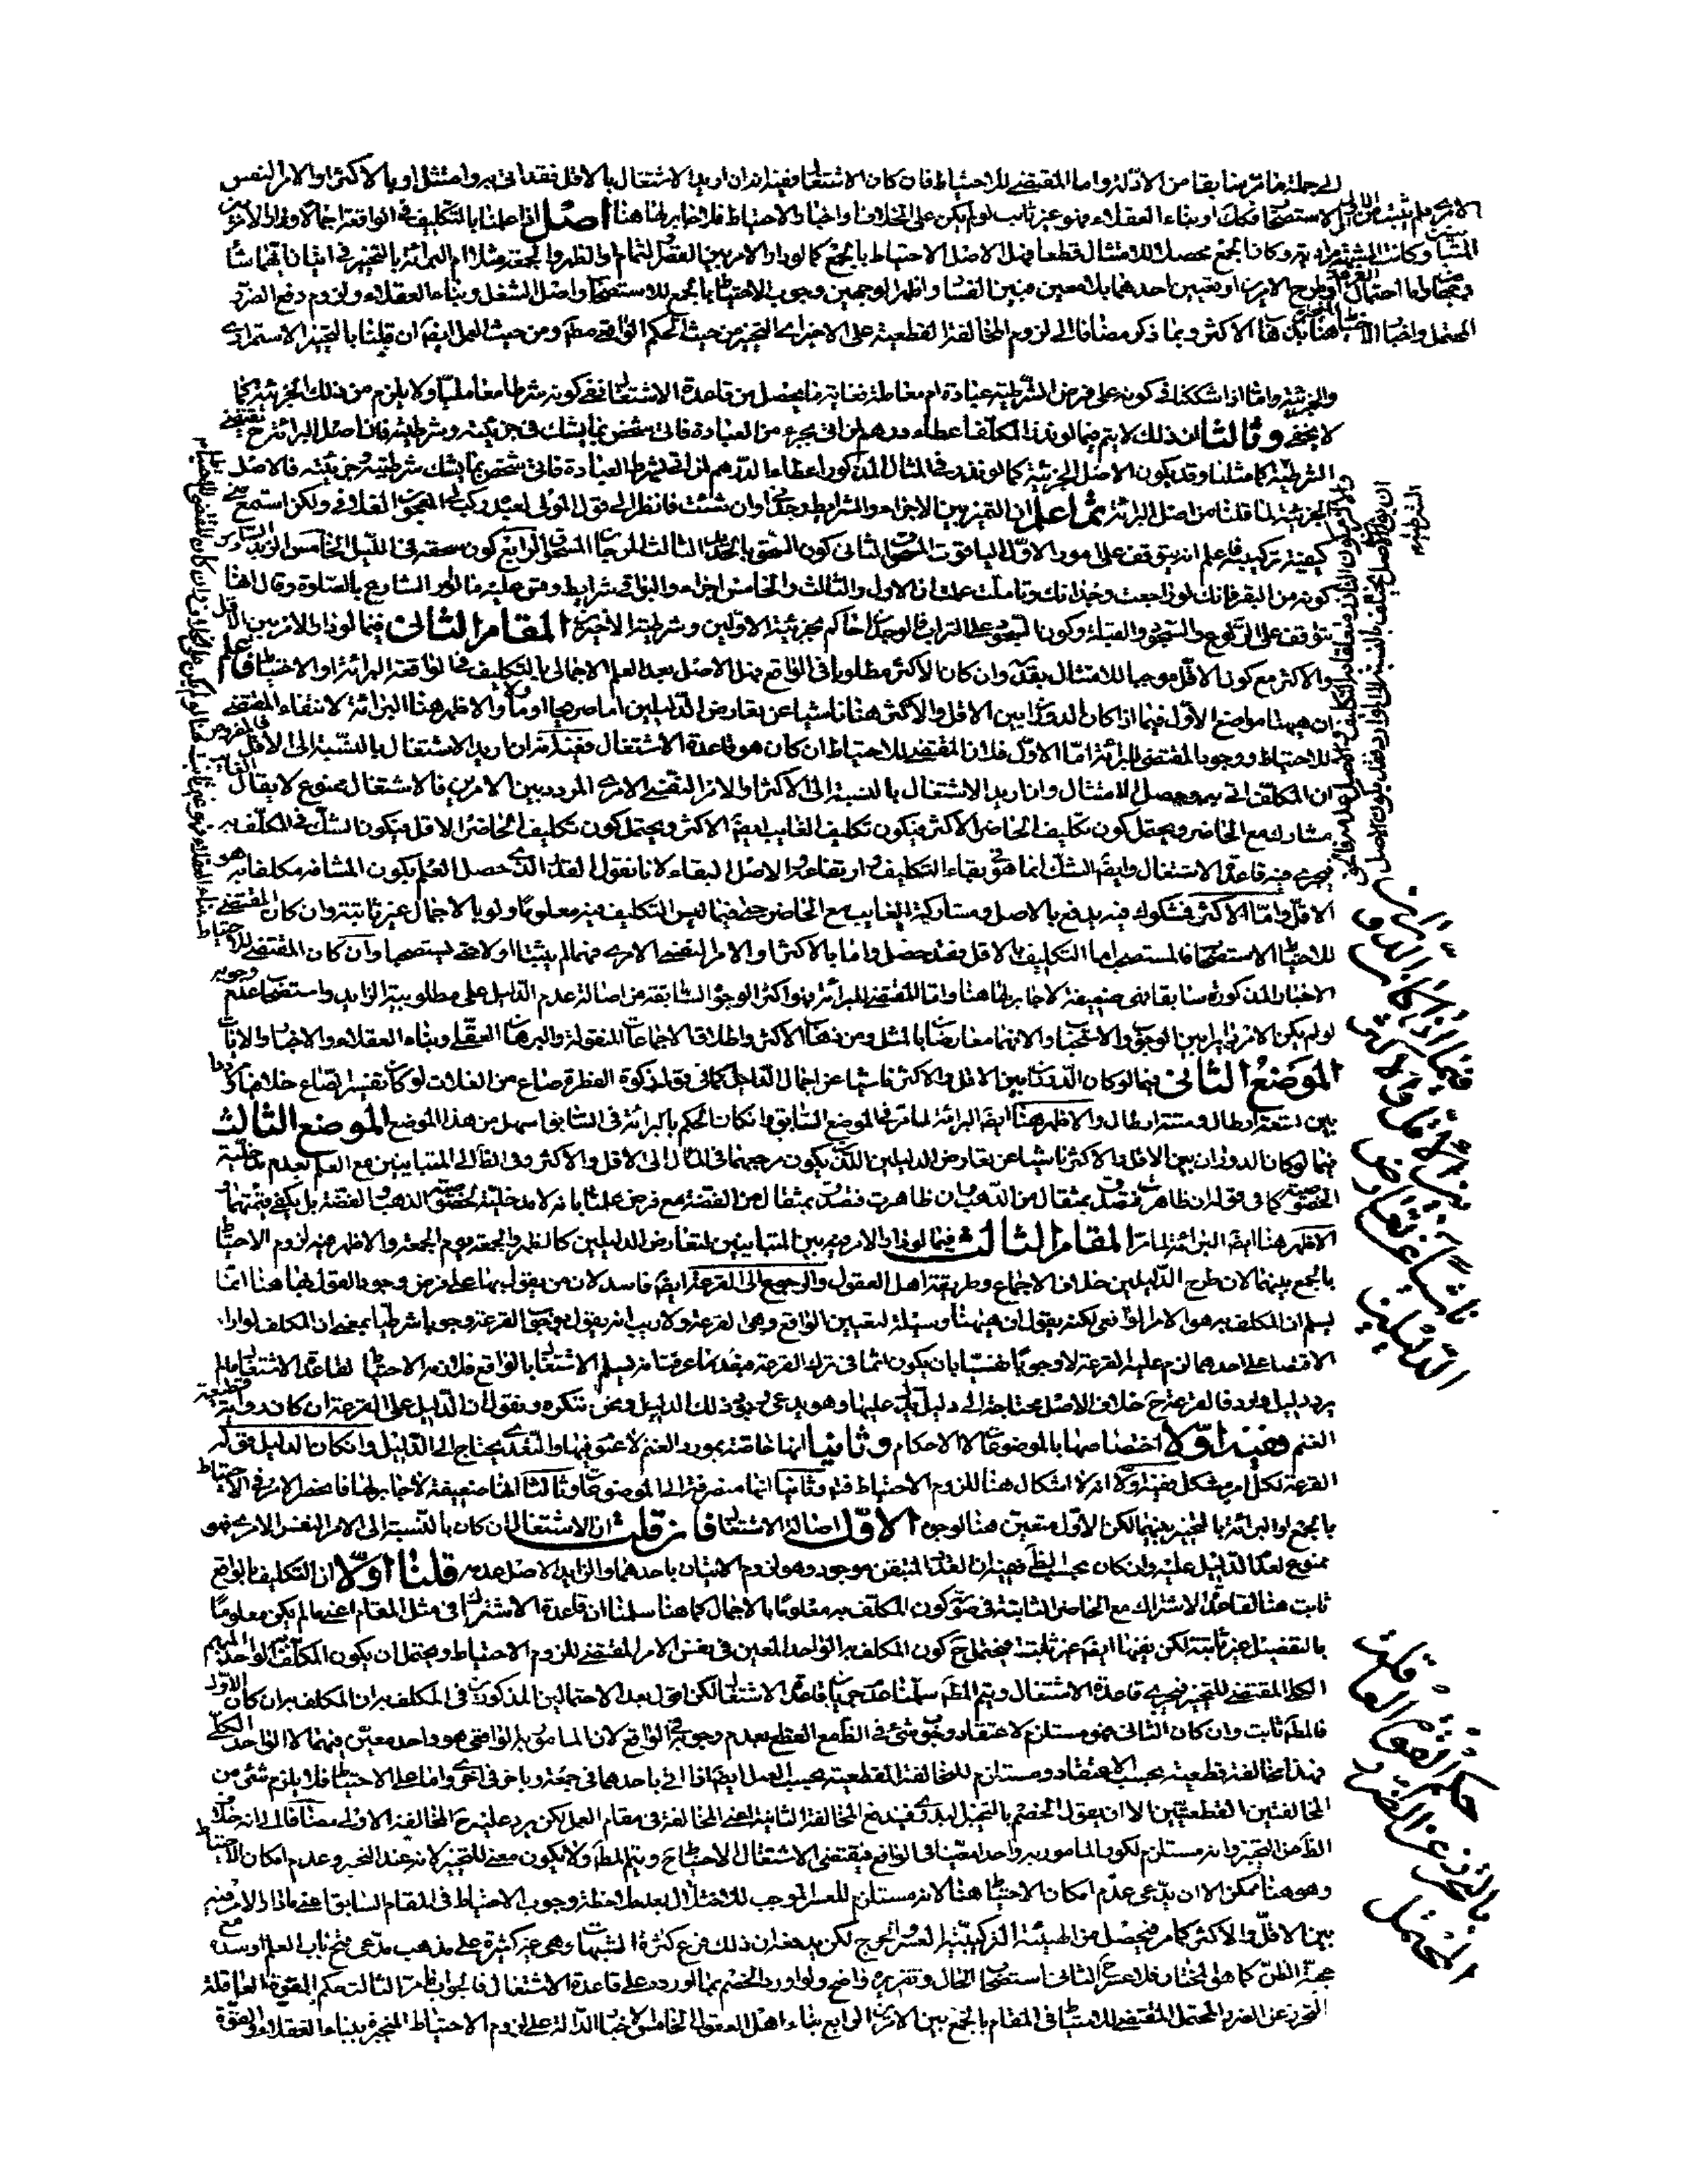 الى جملة ما مر بنا سابقا من الادلة واما المقتضى للاحتياط فان كان الاشتغال ففيه انه ان اريد الاشتغال بالاقل فقد اتى به وامتثل او بالاكثر او الامر النفس
الامرى فلم يثبت من الاول الاستصحاب فكك او بناء العقلاء فهو غير ثابت لو لم يكن على الخلاف او اخبار الاحتياط فلا جابر لها هنا اصل اذا علمنا بالتكليف فى الواقعة اجمالا ودار الامر بين
وكان الجمع محصلا للامتثال قطعا فهل الاصل الاحتياط بالجمع كما لو دار الامر بين القصر والتمام او الظهر والجمعة مثلا ام البرائة بالتخيير فى اتيان ايهما شاء
او طرح الامرين او تعيين احدهما بلا معين مبين الفساد واظهر الوجهين وجوب الاحتياط بالجمع للاستصحاب واصل الشغل وبناء العقلاء ولزوم دفع الضرر
المحتمل واخبار الاحتياط هنا بكن الاكثر وبما ذكر مضافا الى لزوم المخالفة القطعية على الاخرى التخيير من حيث الحكم الواقعى مط ومن حيث العمل ايضا ان قلنا بالتخيير الاستمرارى
والجزئية واما اذا شككنا فى كونه على فرض الشرطية عبادة ام معاملة فغاية ما يحصل من قاعدة الاشتغال نفى كونه شرطا معامليا ولا يلزم من ذلك الجزئية كما
لا يخفى وثالثا ان ذلك لا يتم فيما لو نذر المكلف اعطاء درهم لمن اتى بجزء من العبادة فاتى شخص بما يشك فى جزئيته وشرطيته فان اصل البرائة ح يقتضى
الشرطية كما مثلنا وقد يكون الاصل الجزئية كما لو نذر فى المثال المذكور اعطاء الدرهم لمن اتى بشرط العبادة فاتى شخص بما يشك شرطيته وجزئيته فالاصل
الجزئية لما قلنا من اصل البرائة ثم اعلم ان التميز بين الاجزاء والشرايط وجدانى وان شئت فانظر الى قول المولى لعبده ركب لى المعجون الفلانى ولكن استمع منى
كيفية تركيبه فاعلم انه يتوقف على امور الاول الياقوت المسحوق الثانى كون السحق بالحديد الثالث المرجان المسحوق الرابع كون سحقه فى الليل الخامس الزبد
كونه من البقر فانك لو راجعت وجدانك وتاملت علمت ان الاول والثالث والخامس اجزاء والبواقى شرايط ومتى عليه ما لو امر الشارع بالصلوة وقال انها
تتوقف على الركوع والسجود والقبلة وكون السجود على التراب فالوجدان حاكم بجزئية الاولين وشرطية الاخيرين المقام الثانى فيما لو دار الامر بين الاقل
والاكثر مع كون الاقل موجبا للامتثال بقدره وان كان الاكثر مطلوبا فى الواقع فهل الاصل بعد العلم الاجمالى بالتكليف فى الواقعة البرائة او الاحتياط فاعلم
ان ههنا مواضع الاول فيما اذا كان الدوران بين الاقل والاكثر هنا ناشيا عن تعارض الدليلين اما صريحا او مالا والاظهر هنا البرائة لانتفاء المقتضى
للاحتياط ووجود المقتضى للبرائة اما الاول فلان المقتضى للاحتياط ان كان هو قاعدة الاشتغال ففيه انه ان اريد الاشتغال بالنسبة الى الاقل
ان المكلف اتى به وحصل الامتثال وان اريد الاشتغال بالنسبة الى الاكثر او الامر النفس الامرى المردد بين الامرين فالاشتغال ممنوع لا يقال
مشارك مع الحاضر ويحتمل كون تكليف الحاضر الاكثر فيكون تكليف الغايب ايضا الاكثر ويحتمل كون تكليف الحاضر الاقل فيكون الشك فى المكلف به
فيجرى فيه قاعدة الاشتغال وايضا الشك انما هو فى بقاء التكليف وارتفاعه والاصل البقاء لانا نقول القدر الذى حصل العلم بكون المشافه مكلفا به هو
الاقل واما الاكثر فمشكوك فيه يدفع بالاصل ومشاركة الغايب مع الحاضر حتى فيما ليس التكليف فيه معلوما ولو بالاجمال غير ثابتة وان كان المقتضى
للاحتياط الاستصحاب فالمستصحب اما التكليف بالاقل وقد حصل واما بالاكثر او الامر النفس الامرى فهما لم يثبتا اولا حتى يستصحبا وان كان المقتضى للاحتياط
الاخبار المذكورة سابقا فهى ضعيفة لا جابر لها هنا واما المقتضى للبرائة فهو اكثر الوجوه السابقة من اصالة عدم الدليل على مطلوبية الزايد واستصحاب عدم وجوبه
لو لم يكن الامر دايرا بين الوجوب والاستحباب والا فهما معارضا بالمثل ومن ذهاب الاكثر واطلاق الاجماعات المنقولة والبرهان العقلى وبناء العقلاء والاخبار والايات
الموضع الثانى فيما لو كان الدوران بين الاقل والاكثر ناشيا عن اجمال الدليل كما فى قوله زكوة الفطرة صاع من الغلات لو كان تفسير الصاع خلافيا مرددا
بين تسعة ارطال وستة ارطال والاظهر هنا ايضا البرائة لما مر فى الموضع السابق وان كان الحكم بالبرائة فى السابق اسهل من هذا الموضع الموضع الثالث
فيما لو كان الدوران بين الاقل والاكثر ناشيا عن تعارض الدليلين اللذين يكون مرجعهما فى المال الى الاقل والاكثر وفى الظاهر الى المتباينين مع العلم بعدم مدخلية
الخصوصية كما فى قوله ان ظاهرت فتصدق بمثقال من الذهب وان ظاهرت فتصدق بمثقال من الفضة مع فرض علمنا بانه لا مدخلية لخصوصية الذهب والفضة بل يكفى قيمتهما
الاظهر هنا ايضا البرائة لما مر المقام الثالث فيما لو دار الامر فيه بين المتباينين لتعارض الدليلين كالظهر والجمعة يوم الجمعة والاظهر فيه لزوم الاحتياط
بالجمع بينهما لان طرح الدليلين خلاف الاجماع وطريقة اهل العقول والرجوع الى القرعة ايضا فاسد لان من يقول بها على فرض وجود القول بها هنا انما
يسلم ان المكلف به هو الامر الواقعى لكنه يقول ان ههنا وسيلة لتعيين الواقع وهى القرعة ولا ريب انه يقول بوجوب القرعة وجوبا شرطيا بمعنى ان المكلف لو اراد
الاقتصار على احدهما لزم عليه القرعة لا وجوبا نفسيا بان يكون اثما فى ترك القرعة فبعد ما عرفنا منه تسليم الاشتغال بالواقع فلزمه الاحتياط لقاعدة الاشتغال ما لم
يرد دليل وارد فالقرعة ح خلاف الاصل محتاجة الى دليل يدل عليها وهو يدعى وجود ذلك الدليل ونحن ننكره ونقول ان الدليل على القرعة ان كان رواية قطيعة
الغنم ففيه اولا اختصاصها بالموضوعات لا الاحكام وثانيا انها خاصة بمورد الغنم لا عموم فيها والتعدى يحتاج الى الدليل وان كان الدليل قوله
القرعة لكل امر مشكل ففيه اولا انه لا اشكال هنا للزوم الاحتياط فيه وثانيا انها منصرفة الى الموضوعات وثالثا انها ضعيفة لا جابر لها فانحصر الامر فى الاحتياط
بالجمع او البرائة بالتخيير بينهما لكن الاول متعين هنا لوجوه الاول اصالة الاشتغال فان قلت ان الاشتغال ان كان بالنسبة الى الامر النفس الامرى فهو
ممنوع لعدم الدليل عليه وان كان بحسب الظ ففيه ان القدر المتيقن موجود وهو لزوم الاتيان باحدهما والزايد الاصل عدمه قلنا اولا ان التكليف بالواقع
ثابت هنا لقاعدة الاشتراك مع الحاضر الثابتة فى صورة كون المكلف به معلوما بالاجمال كما هنا سلمنا ان قاعدة الاشتراك فى مثل المقام اعنى ما لم يكن معلوما
بالتفصيل غير ثابتة لكن نفيها ايضا غير ثابتة فيحتمل ح كون المكلف به الواحد المعين فى نفس الامر المقتضى للزوم الاحتياط ويحتمل ان يكون المكلف به الواحد المبهم
الكلى المقتضى للتخيير فيجرى قاعدة الاشتغال ويتم المط سلمنا عدم جريان قاعدة الاشتغال لكن نقول بعد الاحتمالين المذكورين فى المكلف به ان المكلف به ان كان الاول
فالمط ثابت وان كان الثانى فهو مستلزم لاعتقاد وجوب شىء فى الظ مع القطع بعدم وجوبه فى الواقع لان المامور به الواقعى هو واحد معين فيهما لا الواحد الكلى
فهذا مخالفة قطعية بحسب الاعتقاد ومستلزم للمخالفة القطعية بحسب العمل ايضا اذا اتى باحدهما فى جمعة وباخرى فى اخرى واما على الاحتياط فلا يلزم شىء من
المخالفتين القطعيتين الا ان يقول الخصم بالتخيير البدوى فيندفع المخالفة الثانية اعنى المخالفة فى مقام العمل لكن يرد عليه ح المخالفة الاولى مضافا الى انه خلاف
الظ من التخيير وانه مستلزم لكون المامور به واحدا معينا فى الواقع فيقتضى الاشتغال الاحتياط ح ويتم المط ولا يكون معنى للتخيير لانه عند التحير وعدم امكان الاحتياط
وهو هنا ممكن الا ان يدعى عدم امكان الاحتياط هنا لانه مستلزم للعسر الموجب للاختلال بعد ملاحظة وجوب الاحتياط فى المقام السابق اعنى ما دار الامر فيه
بين الاقل والاكثر كما مر فيحصل من الهيئة التركيبية العسر والحرج لكن يدفعه ان ذلك فرع كثرة الشبهات وهى غير كثيرة على مذهب مدعى فتح باب العلم او سده مع
حجية الظن كما هو المختار فلا عسر ح الثانى استصحاب الحال وتقريره واضح ولو اورد الخصم بما اورده على قاعدة الاشتغال فالجواب ما مر الثالث حكم القوة العاقلة
التحرز عن الضرر المحتمل المقتضى للاحتياط فى المقام بالجمع بين الامرين الرابع بناء اهل العقول الخامس الاخبار الدالة على لزوم الاحتياط المنجبرة ببناء العقلاء والقوة
فيما اذا كان الدوران
بين الاقل والاكثر
ناشيا عن تعارض
الدليلين
حكم القوة العاقلة
بالتحرز عن الضرر
المحتمل